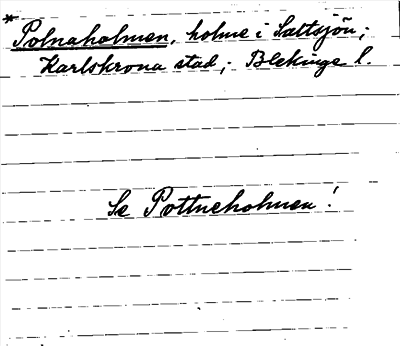 * Polnaholmen, holme i Saltsjön;
Karlskrona stad; Blekinge l.
Se Pottneholmen!